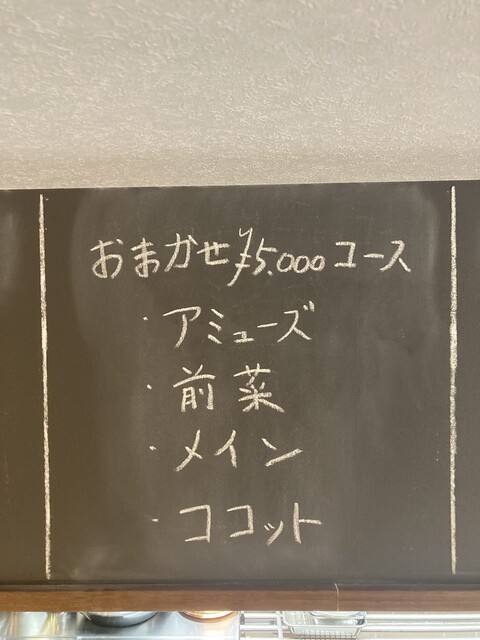 おまかせ¥5.000コース
・アミューズ
・前菜
・メイン
・ココット